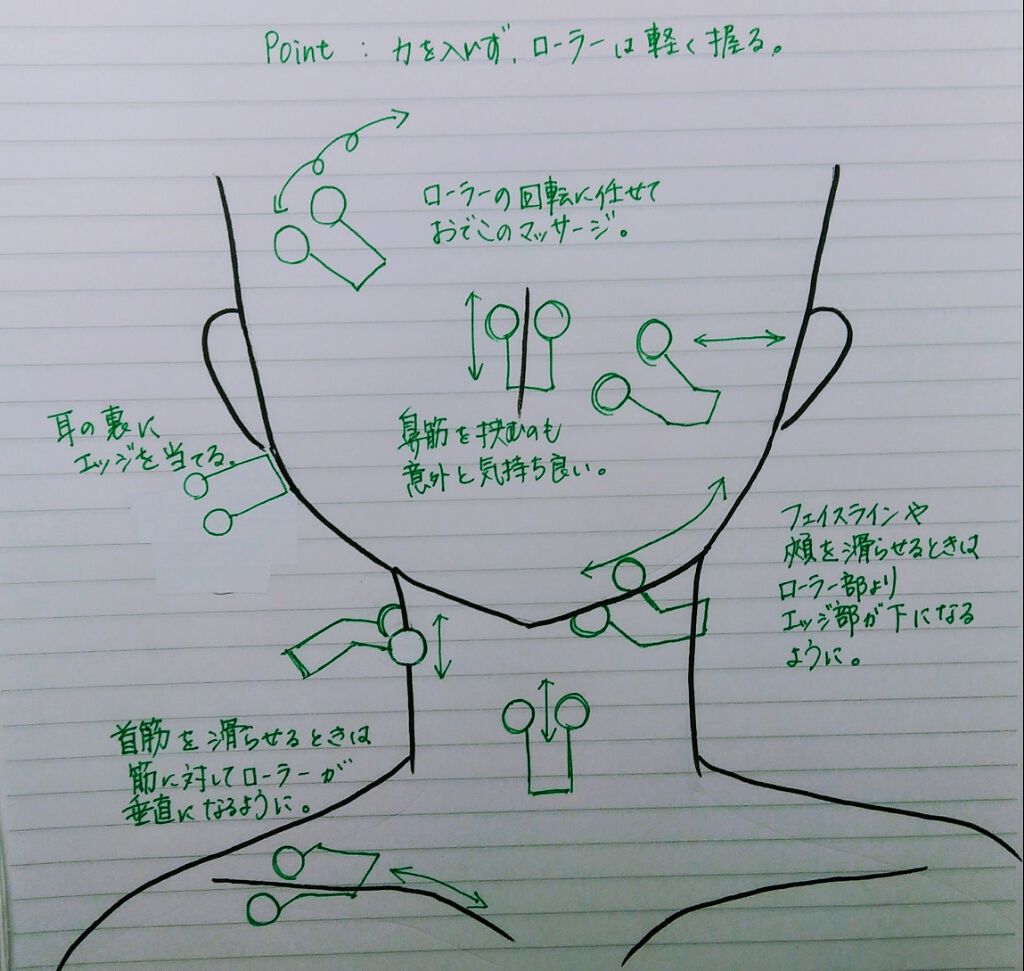 Point : 力を入れず、ローラーは軽く握る。
ローラーの回転に任せて
おでこのマッサージ。
鼻筋を挟むのも
意外と気持ち良い。
耳の裏に
エッジを当てる。
フェイスラインや
頰を滑らせるときは
ローラー部より
エッジ部が下になる
ように。
首筋を滑らせるときは
筋に対してローラーが
垂直になるように。